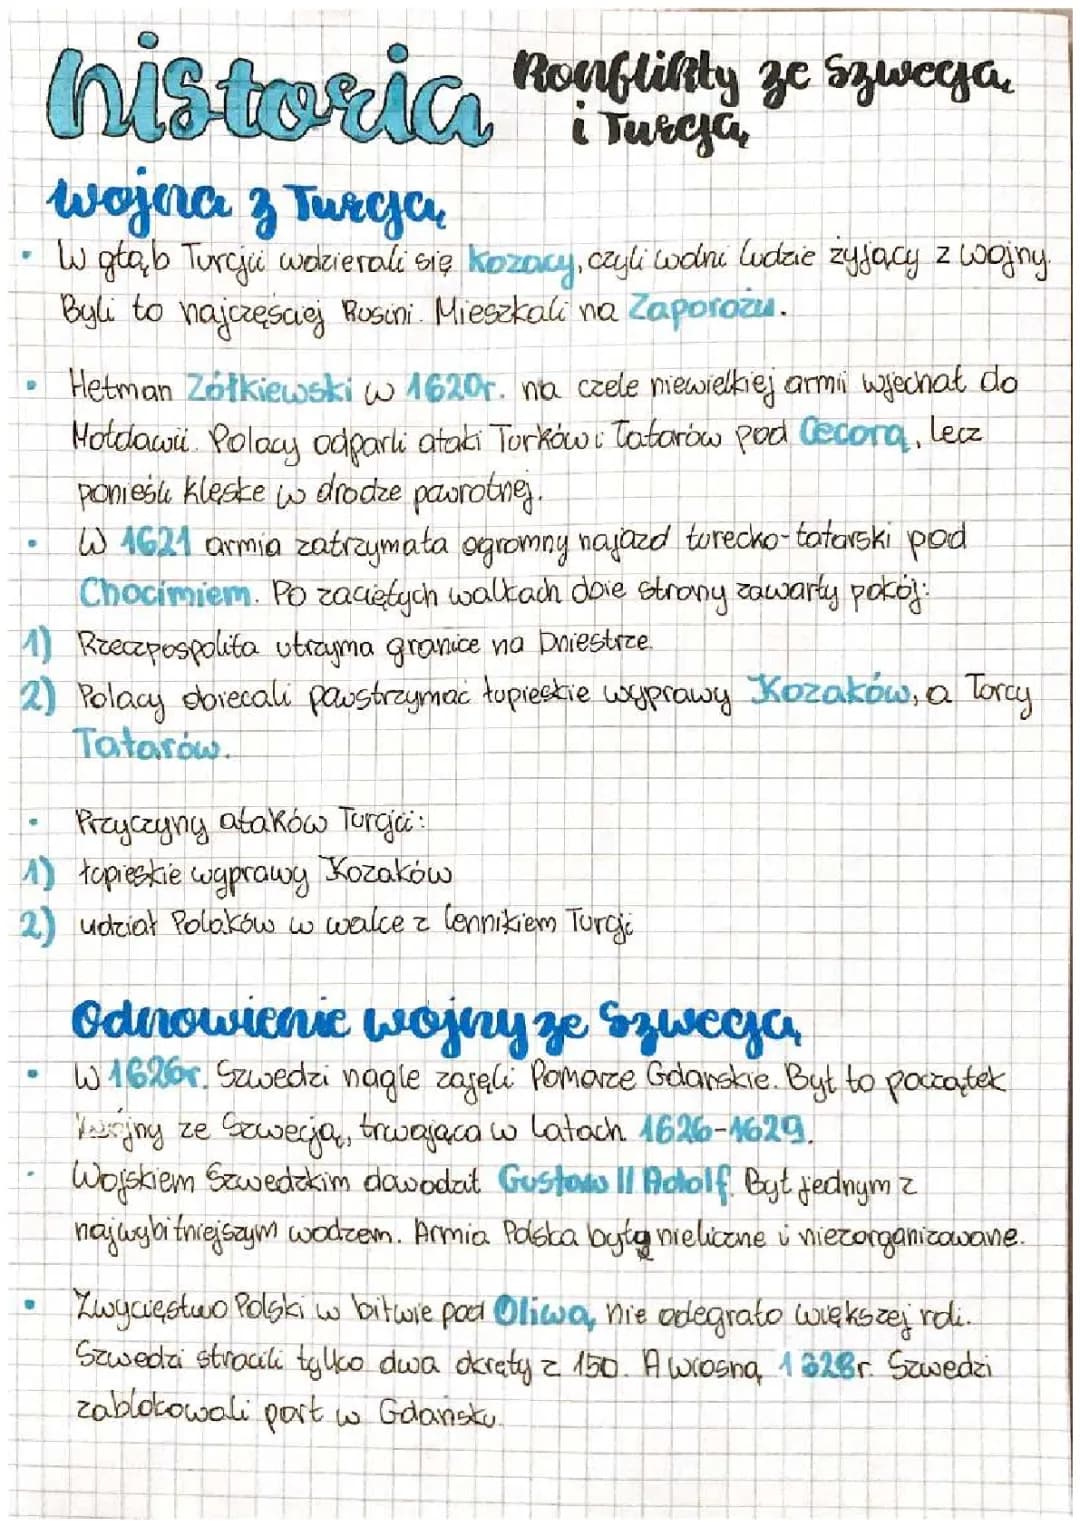 historia
Konflikty ze Szwecją
i Turcją
wojna z Turcją
• W głąb Turcji wdzierali się kozacy, czyli wolni ludzie żyjący z wojny.
Byli to najczęściej Rusini. Mieszkali na Zaporożu.
• Hetman Żółkiewski w 1620r. na czele niewielkiej armii wjechał do
Mołdawii. Polacy odparli ataki Turków i Tatarów pod Cecorą, lecz
ponieśli klęskę w drodze pawrotnej.
• W 1621 armia zatrzymała ogromny najazd turecko-tatarski pod
Chocimiem. Po zaciętych walkach obie strony zawarły pokój:
1) Rzeczpospolita utrzyma granice na Dniestrze.
2) Polacy obiecali pawstrzymać łupieskie wyprawy Kozaków, a Turcy
Tatarów.
• Przyczyny ataków Turcji:
1) łupieskie wyprawy Kozaków
2) udział Polaków w walce z lennikiem Turcji
Odnowienie wojny ze Szwecją
• W 1626r. Szwedzi nagle zajęli Pomorze Gdańskie. Był to początek
wojny ze Szwecją, trwająca w latach 1626-1629.
• Wojskiem Szwedzkim dawodził Gustaw II Adolf. Był jednym z
najwybitniejszym wodzem. Armia Polska była nieliczne i niezorganizowane.
• Zwycięstwo Polski w bitwie pod Oliwą, nie odegrało większej roli.
Szwedzi stracili tylko dwa okręty z 150. A wiosną, 1328r. Szwedzi
zablokowali port w Gdańsku.